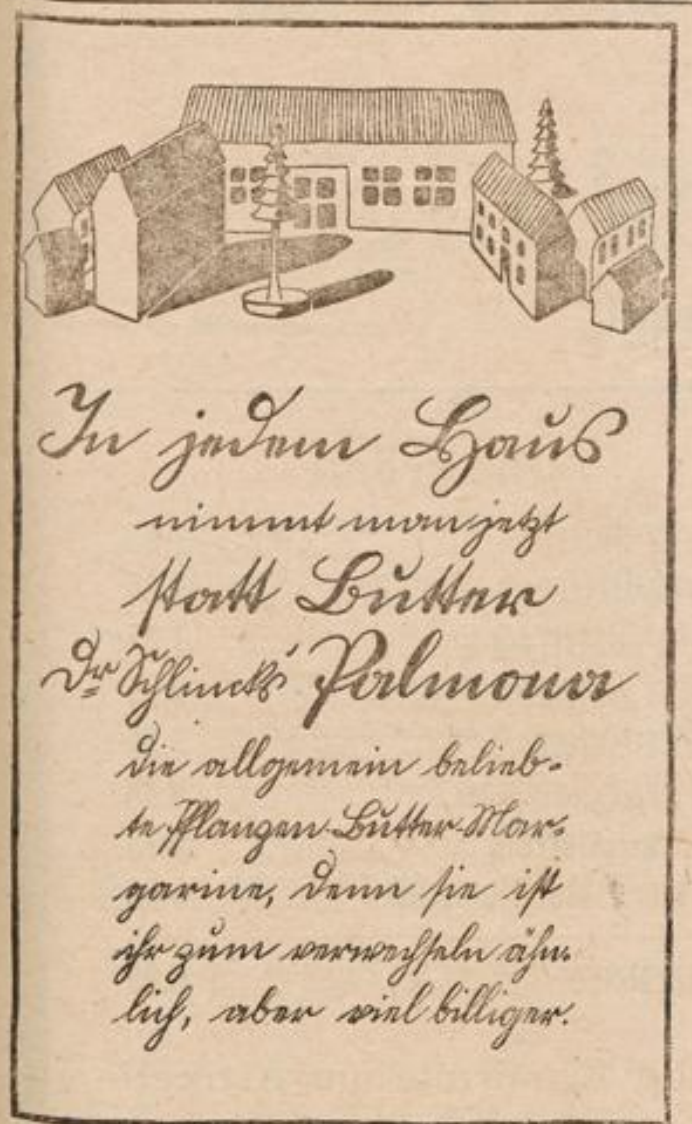 In jedem Haus
nimmt man jetzt
statt Butter
Dr Schlinck's Palmona
die allgemein belieb-
te Pflanzen-Butter-Mar-
garine, denn sie ist
ihr zum verwechseln ähn-
lich, aber viel billiger.